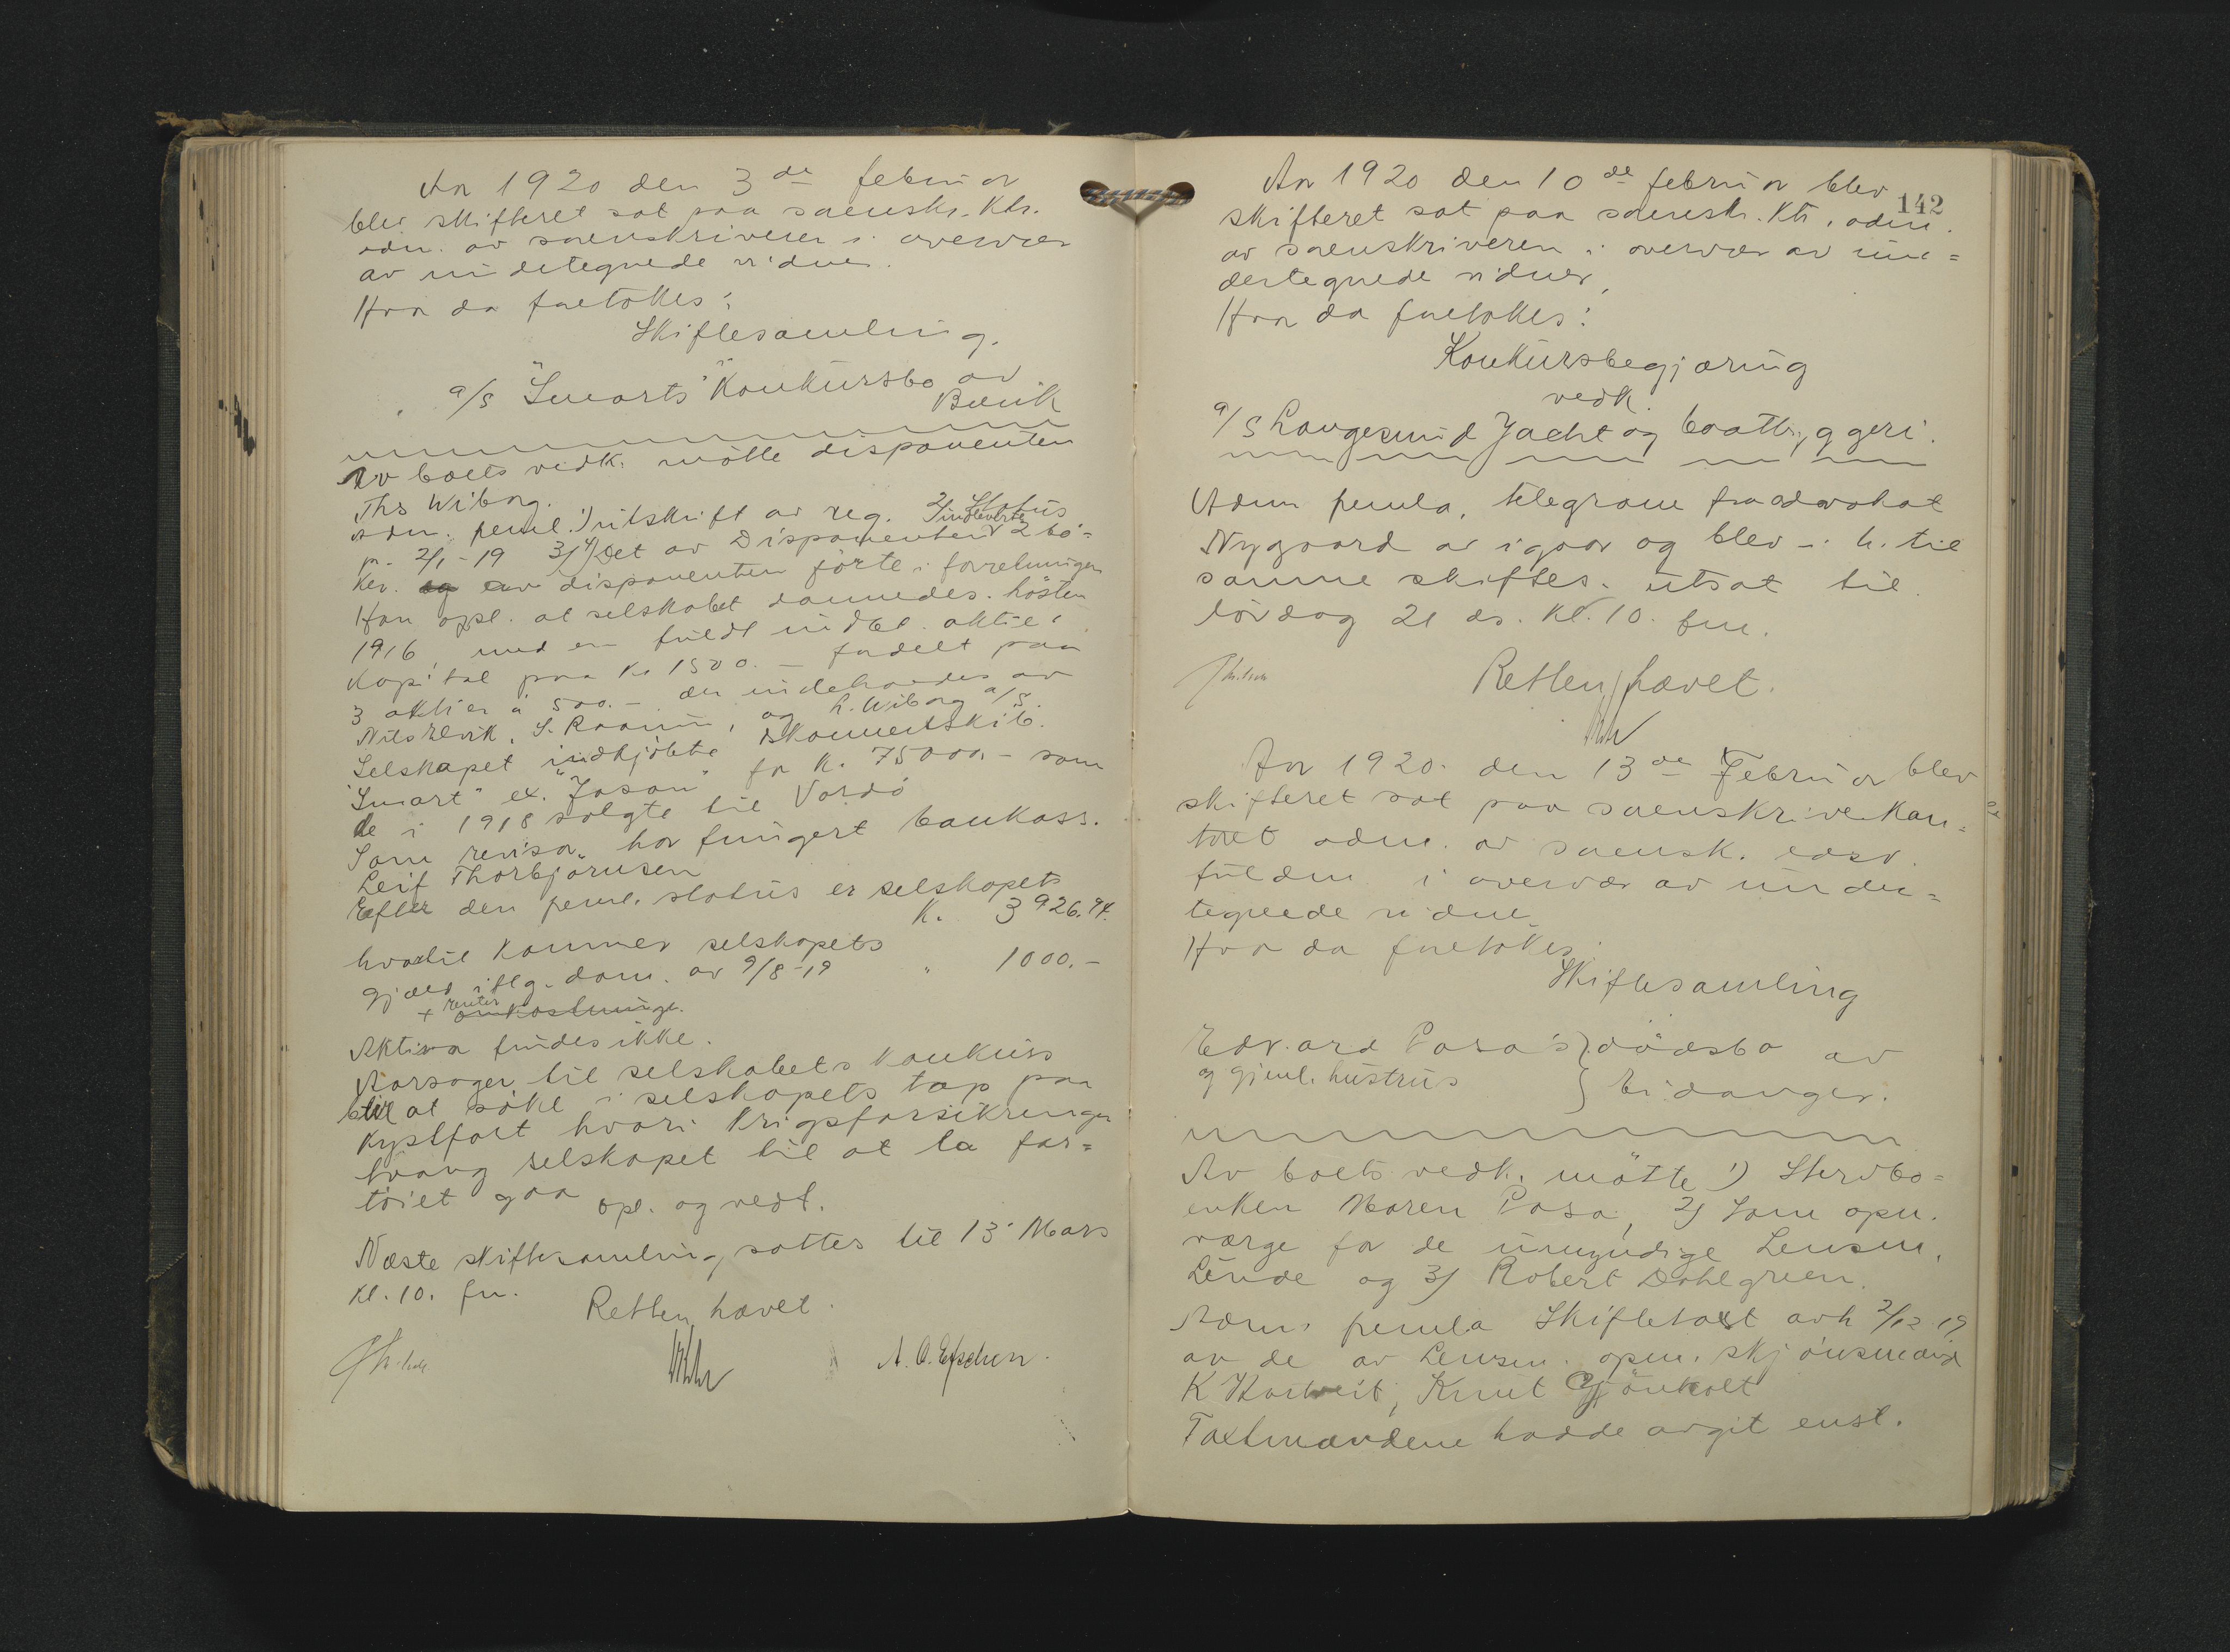 Aar 1920 den 3de februar
blev skifteret sat paa sorenskr. ktr.
adm. av sorenskriveren i overvær
av undertegnede vidner.
Hvor da foretokes:
Skiftesamling.
a/s "Smarts" konkursbo av
Brevik
Av boets vedk. møtte disponenten
Ths Wiborg.
Adm. freml. 1) utskrift av reg. 2/ Status
pr. 2/1-19 3/ Det av Disponenten indleverte 2 bø-
ker. av disponenten førte i forretningen
Han opl. at selskabet dannedes høsten
1916, med en fuldt indbet. aktie-
kapital paa kr 1500.- fordelt paa
3 aktier à 500.- der indehaves av
Nils Elvik, S. Raanum, og h. Wiborg a/s.
Selskapet indkjøbte skonnertskib.
"Smart" ex. "Jason" for kr. 75000.- som
de i 1918 solgte til Vardø
Som revisor har fungert bankass.
Leif Thorbjørnsen
Efter den freml. status er selskapets
kr. 3926.94.
hvortil kommer selskapets
gjæld iflg. dom. av 9/8-19 " 1000.-
+ renter omkostninger.
Aktiva findes ikke.
Aarsager til selskabets konkurs
blir at søke i selskapets tap paa
kystfart hvori krigsforsikringen
tvang selskapet til at la far-
tøiet gaa opl. og vedt.
Næste skiftesamling sattes til 13 Mars
kl. 10. fm.
Retten hævet.
A. O. Eschen.
142
Aar 1920 den 10de februar blev
skifteret sat paa sorenskr. ktr, adm.
av sorenskriveren i overvær av un-
dertegnede vidner,
Hvor da foretokes:
Konkursbegjæring
vedk.
a/s Langesund Yacht og baatbyggeri.
Adm fremla, telegram fra advokat
Nygaard av igaar og blev i h. til
samme skiftes. utsat til
lørdag 21 ds. kl. 10. fm.
Retten hævet.
Aar 1920. den 13de Februar blev
skifteret sat paa sorenskriverkon-
toret adm. av sorensk. edsv.
fuldm i overvær av under-
tegnede vidne
Hvor da foretokes:
Skiftesamling
Edvard Pasa's } dødsbo av
og gjenl. hustrus } Eidanger.
Av boets vedk. møtte 1) Stervbo-
enken Maren Pasa, 2) Som opn.
værge for de umyndige Lensm.
Linde og 3) Robert Dahlgreen.
Adm. fremla Skiftetakst avh 2/12 19
av de av Lensm. opn. skjønsmænd
K Hartveit, Knut Gjönholt
Taxtmændene hadde avgit enst.